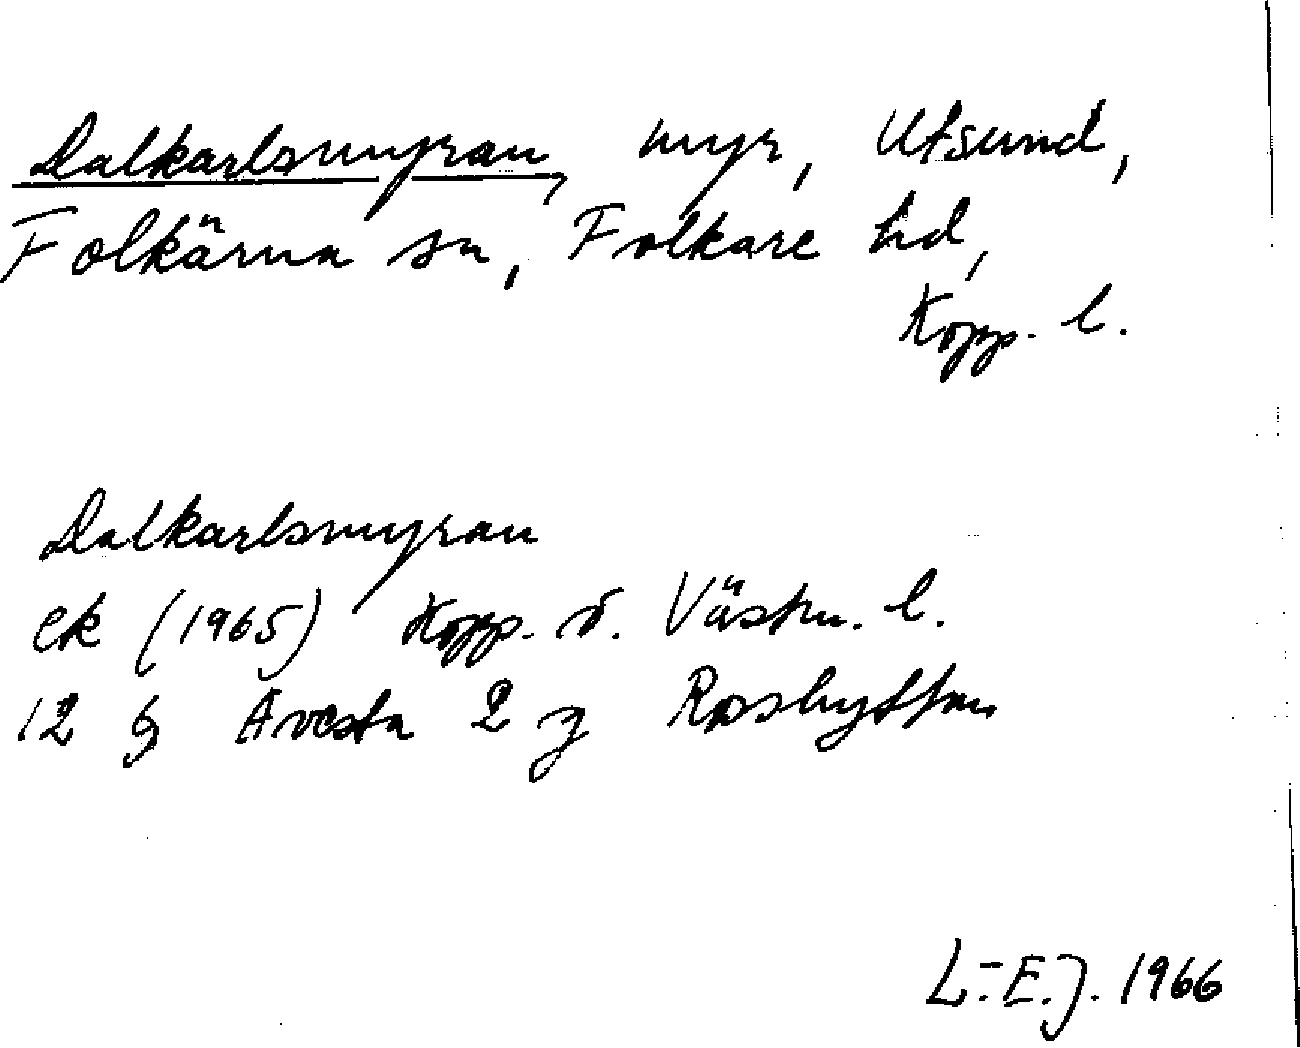 Dalkarlsmyran, myr, Utsund,
Folkärna sn, Folkare hd,
Kopp. l.
Dalkarlsmyran
ek (1965) Kopp. o. Västm. l.
12 G Avesta 2 g Rosshyttan
L.-E.J. 1966